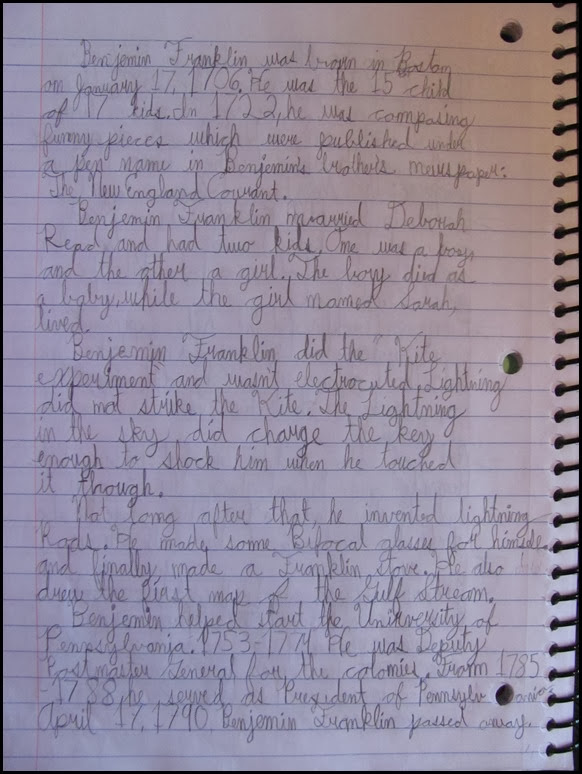 Benjemin Franklin was brown in Boston
on January 17, 1706. He was the 15 child
of 17 kids. In 1722, he was composing
funny pieces which were published under
a pen name in Benjemin's brother's newspaper:
The New England Courant.
Benjemin Franklin marrried Deborah
Read and had two kids. One was a boy,
and the other a girl. The boy died as
a baby, while the girl named Sarah,
lived.
Benjemin Franklin did the "Kite
experiment" and wasn't electrocuted. Lightning
did not strike the Kite. The Lightning
in the sky did charge the key
enough to shock him when he touched
it though.
Not long after that, he invented lightning
Rods. He made some Bifocal glasses for himself
and finally made a Franklin stove. He also
drew the first map of the Gulf Stream.
Benjemin helped start the University of
Pennsylvania. 1753-1774 He was Deputy
Postmaster General for the colonies. From 1785
-1788 he served as President of Pennsylvania.
April 17, 1790, Benjemin Franklin passed away.